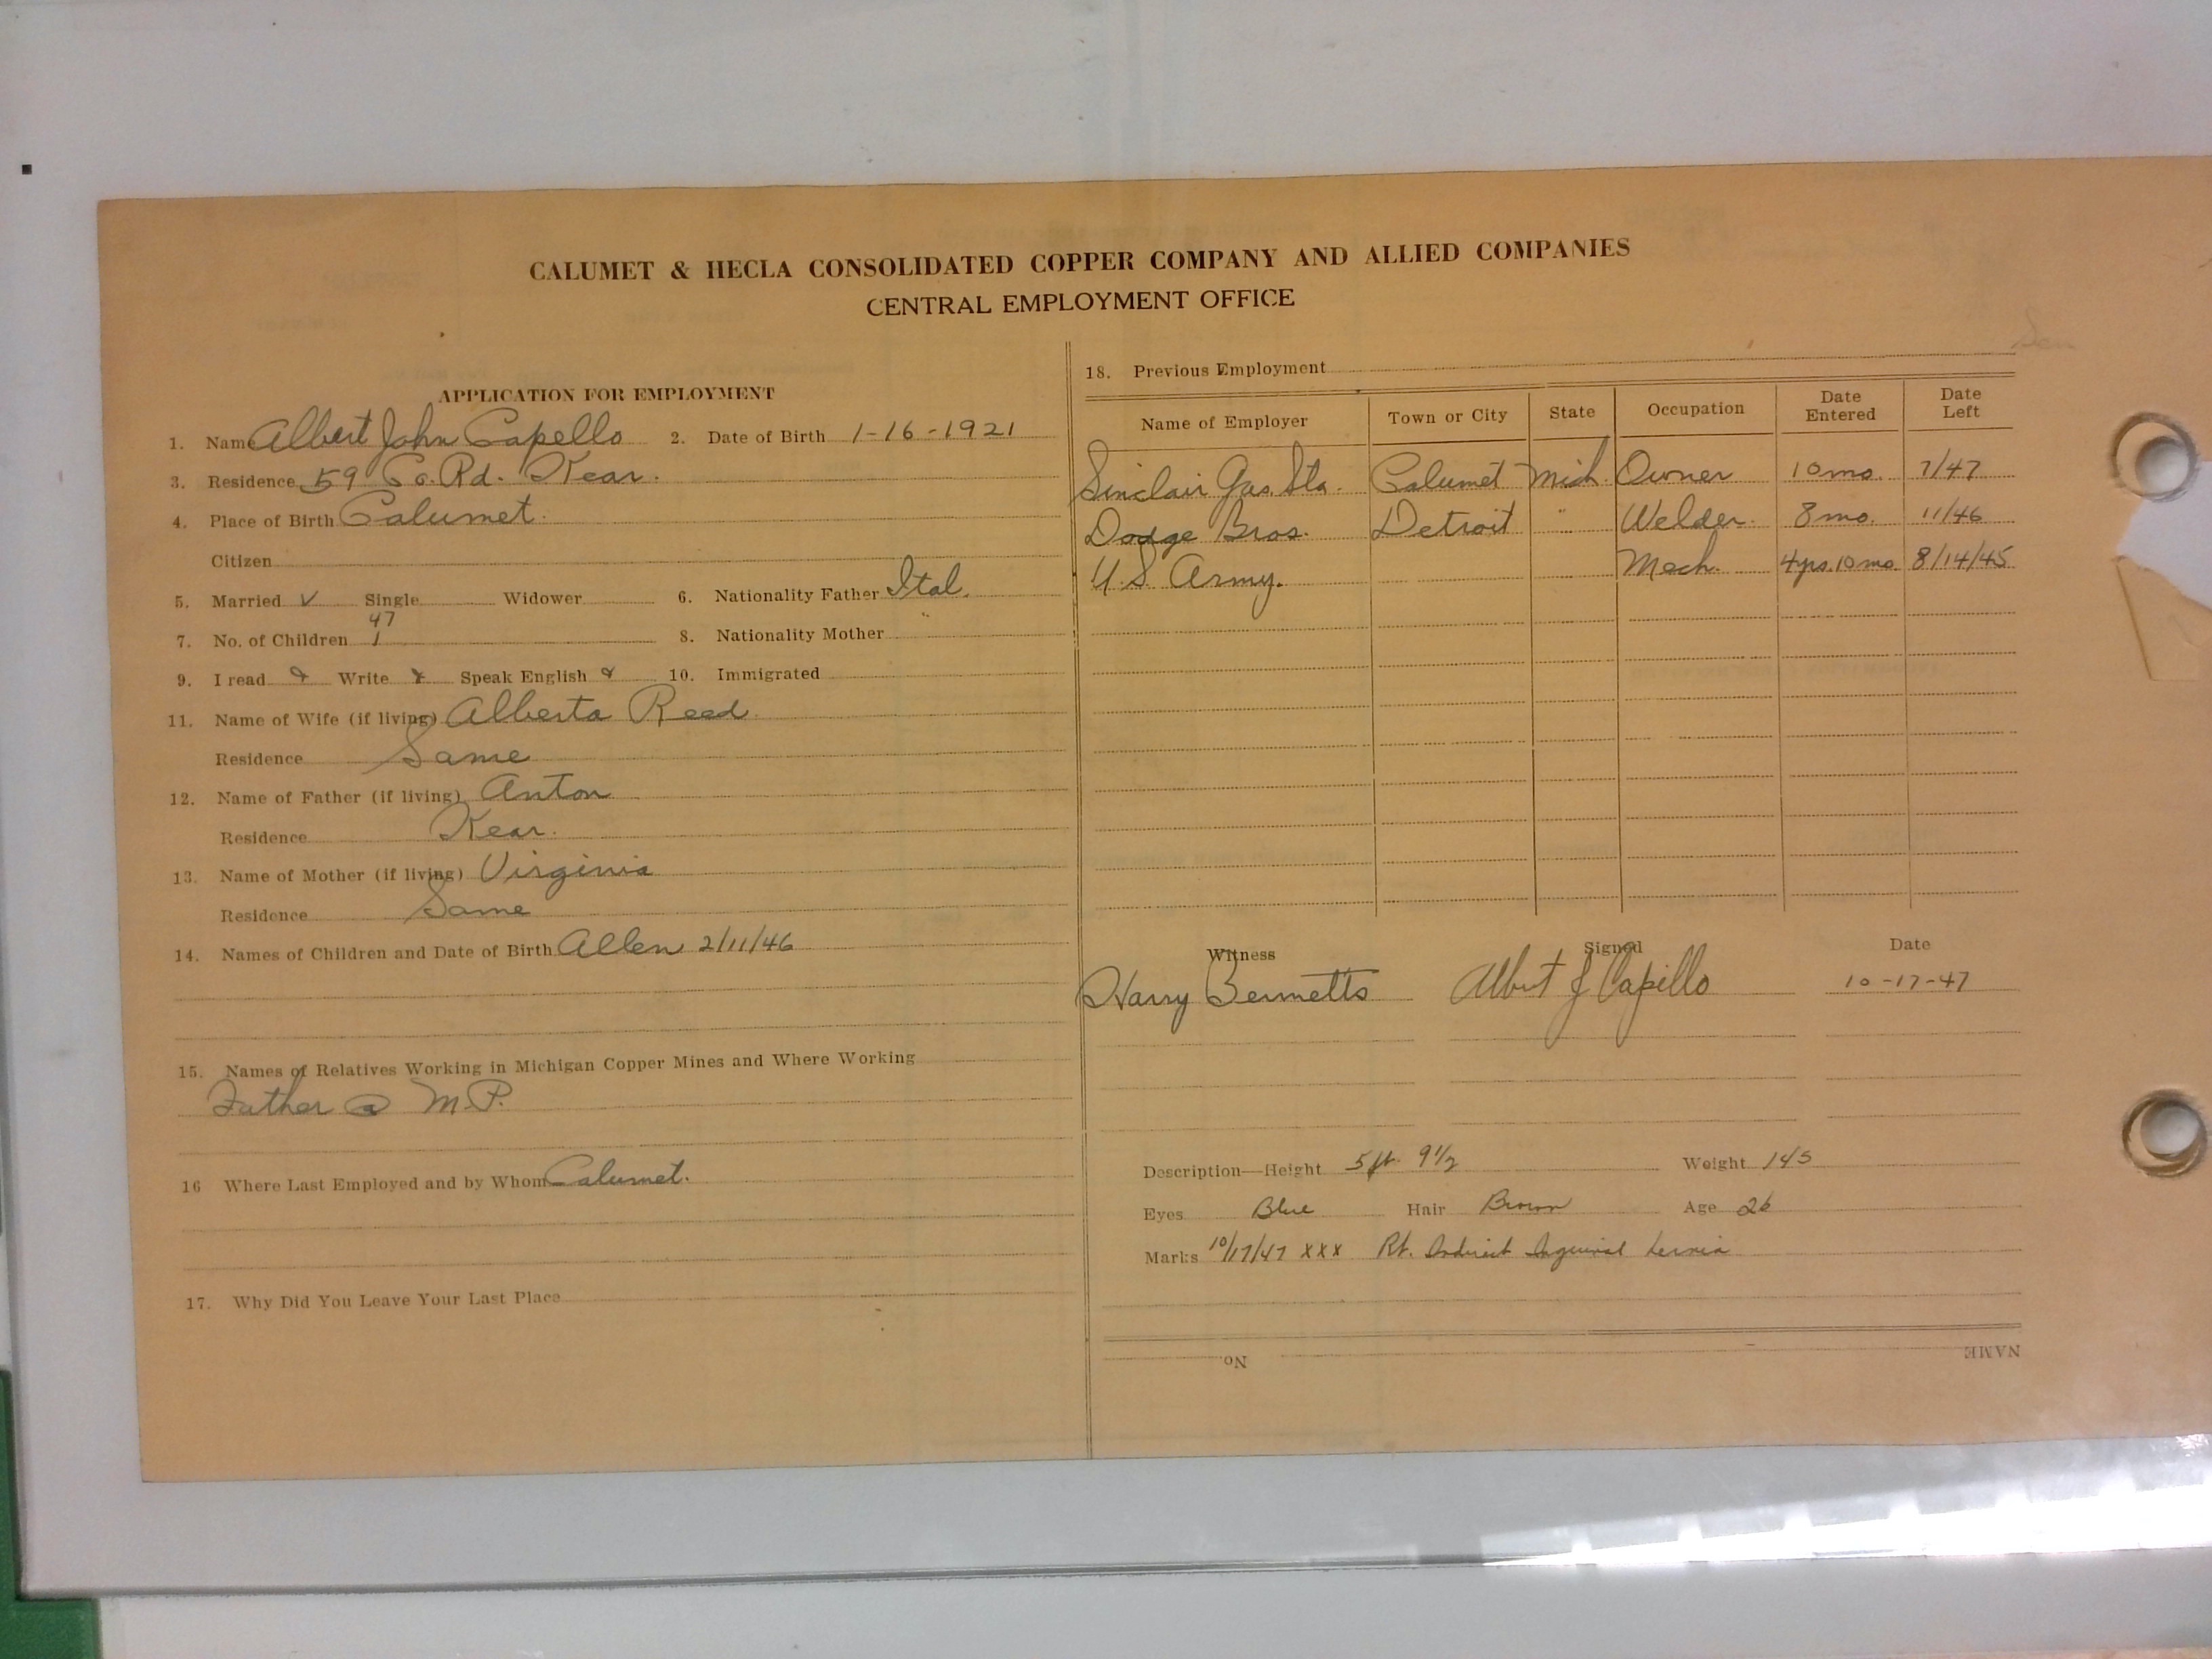 CALUMET & HECLA CONSOLIDATED COPPER COMPANY AND ALLIED COMPANIES
CENTRAL EMPLOYMENT OFFICE
APPLICATION FOR EMPLOYMENT
1. Name Albert John Capello 2. Date of Birth 1-16-1921
3. Residence 59 Co. Rd. Kear.
4. Place of Birth Calumet.
Citizen
5. Married ✓ Single Widower 6. Nationality Father Ital.
47
7. No. of Children 1 8. Nationality Mother "
9. I read Write Speak English 10. Immigrated
11. Name of Wife (if living) Alberta Reed
Residence Same
12. Name of Father (if living) Anton
Residence Kear.
13. Name of Mother (if living) Virginia
Residence Same
14. Names of Children and Date of Birth Allen 2/11/46
15. Names of Relatives Working in Michigan Copper Mines and Where Working
Father @ M.P.
16 Where Last Employed and by Whom Calumet.
17. Why Did You Leave Your Last Place
18. Previous Employment
Name of Employer Town or City State Occupation Date Entered Date Left
Sinclair Gas. Sta. Calumet Mich. Owner 10 mo. 7/47
Dodge Bros. Detroit " Welder. 8 mo. 11/46
U.S. Army. Mech. 4 yrs. 10 mo. 8/14/45
Witness Signed Date
Harry Bennetts Albert J Capello 10-17-47
Description—Height 5 ft. 9 1/2 Weight 145
Eyes Blue Hair Brown Age 26
Marks 10/17/47 xxx Rt. Indirect Inguinal hernia
No. NAME